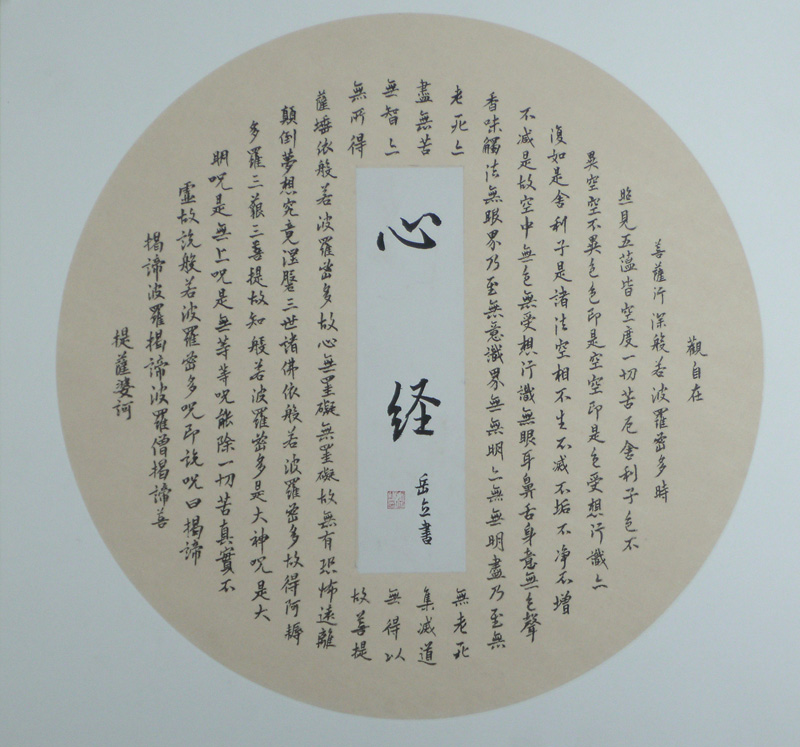 觀自在
菩薩行深般若波羅密多時
照見五蘊皆空度一切苦厄舍利子色不
異空空不異色色即是空空即是色受想行識亦
復如是舍利子是諸法空相不生不滅不垢不净不增
不减是故空中無色無受想行識無眼耳鼻舌身意無色聲
香味觸法無眼界乃至無意識界無無明亦無無明盡乃至無
老死亦無老死
盡無苦集滅道
無智亦無得以
無所得故菩提
薩埵依般若波羅密多故心無罣礙無罣礙故無有恐怖遠離
顛倒夢想究竟涅槃三世諸佛依般若波羅密多故得阿耨
多羅三藐三菩提故知般若波羅密多是大神咒是大
明咒是無上咒是無等等咒能除一切苦真實不
虛故説般若波羅密多咒即説咒曰揭諦
揭諦波羅揭諦波羅僧揭諦菩
提薩婆訶
心经
岳立書